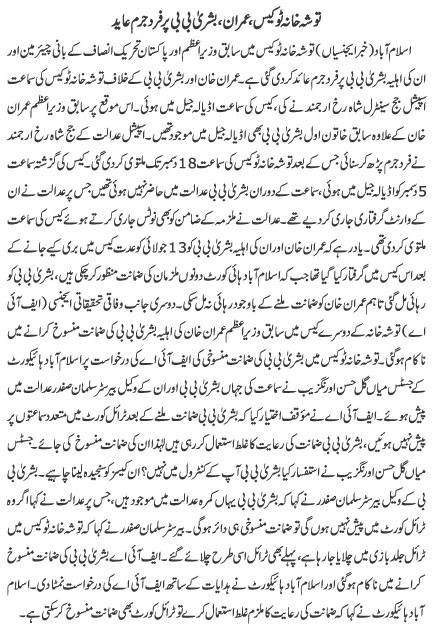 توشہ خانہ ٹو کیس، عمران، بشریٰ بی بی پر فرد جرم عاید
اسلام آباد (خبر ایجنسیاں) توشہ خانہ ٹو کیس میں سابق وزیراعظم اور پاکستان تحریک انصاف کے بانی چیئرمین اور
ان کی اہلیہ بشریٰ بی بی پر فرد جرم عائد کر دی گئی ہے۔ عمران خان اور بشریٰ بی بی کے خلاف توشہ خانہ ٹو کیس کی سماعت
اسپیشل جج سینٹرل شاہ رخ ارجمند نے کی، کیس کی سماعت اڈیالہ جیل میں ہوئی۔ اس موقع پر سابق وزیراعظم عمران
خان کے علاوہ سابق خاتون اول بشریٰ بی بی بھی اڈیالہ جیل میں موجود تھیں۔ اسپیشل عدالت کے جج شاہ رخ ارجمند
نے فرد جرم پڑھ کر سنائی جس کے بعد توشہ خانہ ٹو کیس کی سماعت 18 دسمبر تک ملتوی کر دی گئی۔ کیس کی گزشتہ سماعت
5 دسمبر کو اڈیالہ جیل میں ہوئی، سماعت کے دوران بشریٰ بی بی عدالت میں حاضر نہیں ہوئی تھیں جس پر عدالت نے ان
کے وارنٹ گرفتاری جاری کر دیے تھے۔ عدالت نے ملزمہ کے ضامن کو بھی نوٹس جاری کرتے ہوئے کیس کی سماعت
ملتوی کر دی تھی۔ یاد رہے کہ عمران خان اور ان کی اہلیہ بشریٰ بی بی کو 13 جولائی کو عدت کیس میں بری کیے جانے کے
بعد اس کیس میں گرفتار کیا گیا تھا جب کہ اسلام آباد ہائی کورٹ دونوں ملزمان کی ضمانت منظور کر چکی ہیں، بشریٰ بی بی کو
رہائی مل گئی تاہم عمران خان کو ضمانت ملنے کے باوجود رہائی نہ مل سکی۔ دوسری جانب وفاقی تحقیقاتی ایجنسی (ایف آئی
اے) توشہ خانہ کے دوسرے کیس میں سابق وزیراعظم عمران خان کی اہلیہ بشریٰ بی بی کی ضمانت منسوخ کرانے میں
ناکام ہوگئی۔ توشہ خانہ ٹو کیس میں بشریٰ بی بی کی ضمانت منسوخی کی ایف آئی اے کی درخواست پر اسلام آباد ہائیکورٹ
کے جسٹس میاں گل حسن اورنگزیب نے سماعت کی جہاں بشریٰ بی بی اور ان کے وکیل بیرسٹر سلمان صفدر عدالت میں
پیش ہوئے۔ ایف آئی اے نے مؤقف اختیار کیا کہ بشریٰ بی بی ضمانت ملنے کے بعد ٹرائل کورٹ میں متعدد سماعتوں پر
پیش نہیں ہوئیں، بشریٰ بی بی ضمانت کی رعایت کا غلط استعمال کر رہی ہیں لہٰذا ان کی ضمانت منسوخ کی جائے۔ جسٹس
میاں گل حسن اورنگزیب نے استفسار کیا بشریٰ بی بی آپ کے کنٹرول میں نہیں؟ ان کیسز کو سنجیدہ لینا چاہیے۔ بشریٰ بی
بی کے وکیل بیرسٹر سلمان صفدر نے کہا کہ بشریٰ بی بی یہاں کمرہ عدالت میں موجود ہیں، جس پر عدالت نے کہا اگر وہ
ٹرائل کورٹ میں پیش نہیں ہوں گی تو ضمانت منسوخی ہی دائر ہوگی۔ بیرسٹر سلمان صفدر نے کہا کہ توشہ خانہ ٹو کیس میں
ٹرائل جلد بازی میں چلایا جا رہا ہے، پہلے بھی ٹرائل اسی طرح چلائے گئے۔ ایف آئی اے بشریٰ بی بی کی ضمانت منسوخ
کرانے میں ناکام ہوگئی اور اسلام آباد ہائیکورٹ نے ہدایات کے ساتھ ایف آئی اے کی درخواست نمٹا دی۔ اسلام
آباد ہائیکورٹ نے کہا کہ ضمانت کی رعایت کا ملزم غلط استعمال کرے تو ٹرائل کورٹ بھی ضمانت منسوخ کر سکتی ہے۔